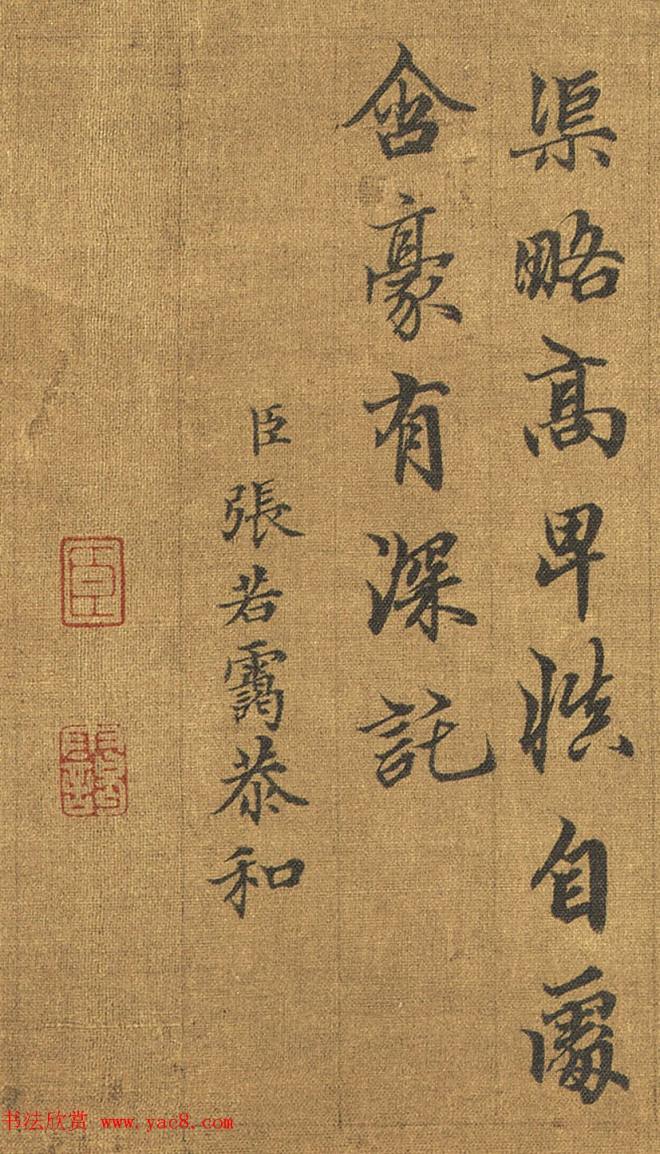 渠略高卑慎自處
含豪有深託
臣張若靄恭和
臣
书法欣赏 www.yac8.com